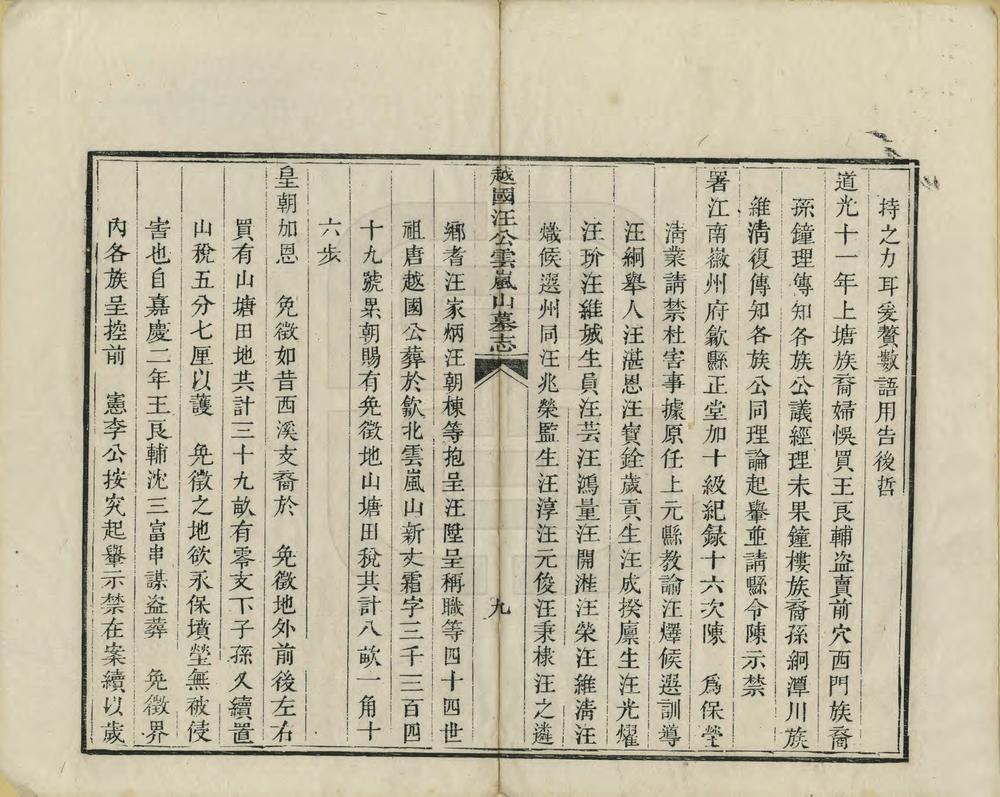 持之力耳爰贅數語用告後哲
道光十一年上塘族裔婦悞買王良輔盗賣前穴西門族裔
孫鐘理傳知各族公議經理未果鐘樓族裔孫絅潭川族
維淸復傳知各族公同理論起轝並請縣令陳示禁
署江南徽州府歙縣正堂加十級紀録十六次陳　為保塋
淸業請禁杜害事據原任上元縣教諭汪燡候選訓導
汪絅舉人汪湛恩汪寳銓歲貢生汪成揆廪生汪光燿
汪玠汪維城生員汪芸汪鴻量汪開漋汪榮汪維淸汪
熾候選州同汪兆榮監生汪淳汪元俊汪秉棣汪之遴
越國汪公雲嵐山墓志
九
鄉耆汪家炳汪朝棟等抱呈汪陞呈稱職等四十四世
祖唐越國公葬於歙北雲嵐山新丈霜字三千三百四
十九號累朝賜有免徵地山塘田稅共計八畝一角十
六步
皇朝加恩　免徵如昔西溪支裔於　免徵地外前後左右
買有山塘田地共計三十九畝有零支下子孫又續置
山稅五分七厘以護　免徵之地欲永保墳塋無被侵
害也自嘉慶二年王良輔沈三富串謀盗葬　免徵界
內各族呈控前　憲李公按究起轝示禁在案續以歲